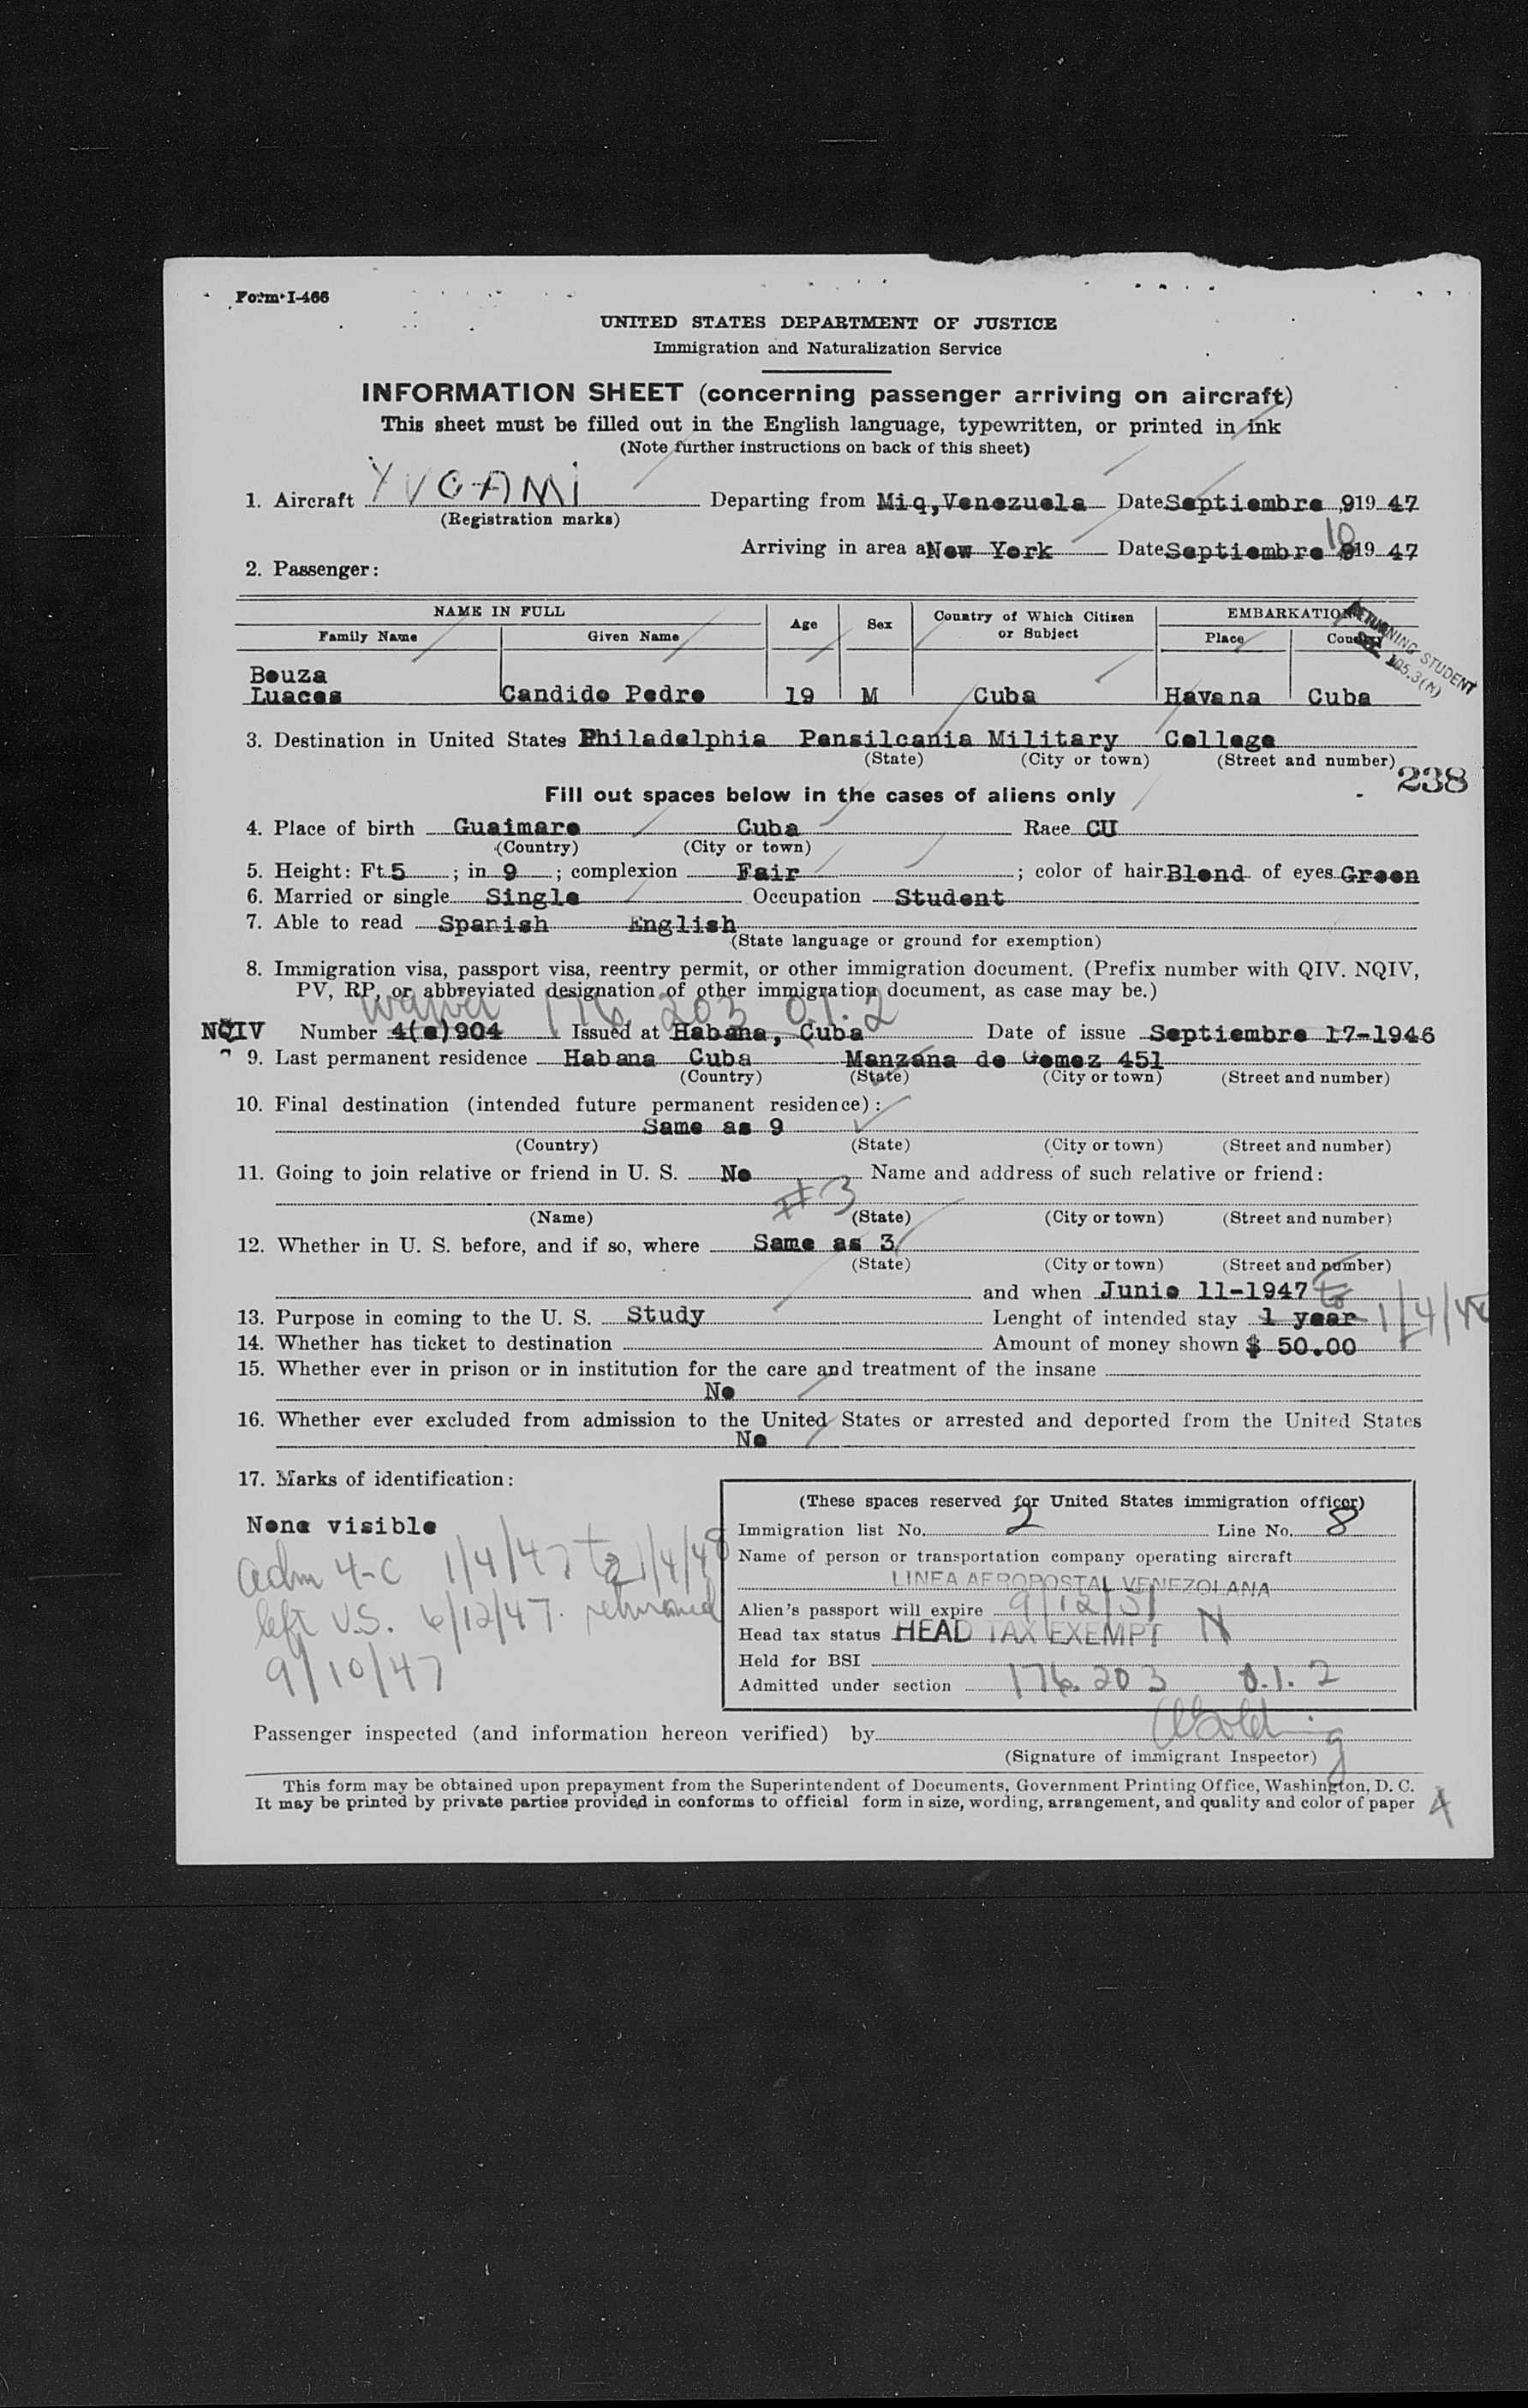 Form I-466
UNITED STATES DEPARTMENT OF JUSTICE
Immigration and Naturalization Service
INFORMATION SHEET (concerning passenger arriving on aircraft)
This sheet must be filled out in the English language, typewritten, or printed in ink
(Note further instructions on back of this sheet)
1. Aircraft YVC-AMI Departing from Miq,Venezuela Date Septiembre 9 19 47
(Registration marks)
Arriving in area a New York Date Septiembre 10 19 47
2. Passenger:
NAME IN FULL Age Sex Country of Which Citizen or Subject EMBARKATION
Family Name Given Name Place Country
RETURNING STUDENT
SEC. 125.3(N)
Bouza
Luaces Candido Pedro 19 M Cuba Havana Cuba
3. Destination in United States Philadelphia Pensilcania Military College
(State) (City or town) (Street and number)
238
Fill out spaces below in the cases of aliens only
4. Place of birth Guaimaro Cuba Race CU
(Country) (City or town)
5. Height: Ft. 5 ; in 9 ; complexion Fair ; color of hair Blond of eyes Green
6. Married or single Single Occupation Student
7. Able to read Spanish English
(State language or ground for exemption)
8. Immigration visa, passport visa, reentry permit, or other immigration document. (Prefix number with QIV. NQIV,
PV, RP, or abbreviated designation of other immigration document, as case may be.)
waiver 176.203 0.1.2
NQIV Number 4(e)904 Issued at Habana, Cuba Date of issue Septiembre 17-1946
9. Last permanent residence Habana Cuba Manzana de Gomez 451
(Country) (State) (City or town) (Street and number)
10. Final destination (intended future permanent residence):
Same as 9
(Country) (State) (City or town) (Street and number)
11. Going to join relative or friend in U. S. No Name and address of such relative or friend:
#3
(Name) (State) (City or town) (Street and number)
12. Whether in U. S. before, and if so, where Same as 3
(State) (City or town) (Street and number)
and when Junio 11-1947
13. Purpose in coming to the U. S. Study Lenght of intended stay 1 year to 1/4/48
14. Whether has ticket to destination Amount of money shown $ 50.00
15. Whether ever in prison or in institution for the care and treatment of the insane
No
16. Whether ever excluded from admission to the United States or arrested and deported from the United States
No
17. Marks of identification:
None visible
adm 4-C 1/4/47 to 1/4/48
left U.S. 6/12/47. returned
9/10/47
(These spaces reserved for United States immigration officer)
Immigration list No. 2 Line No. 8
Name of person or transportation company operating aircraft
LINEA AEROPOSTAL VENEZOLANA
Alien's passport will expire 9/12/51
Head tax status HEAD TAX EXEMPT N
Held for BSI
Admitted under section 176.203 0.1.2
Passenger inspected (and information hereon verified) by
(Signature of immigrant Inspector)
This form may be obtained upon prepayment from the Superintendent of Documents, Government Printing Office, Washington, D. C.
It may be printed by private parties provided in conforms to official form in size, wording, arrangement, and quality and color of paper
4